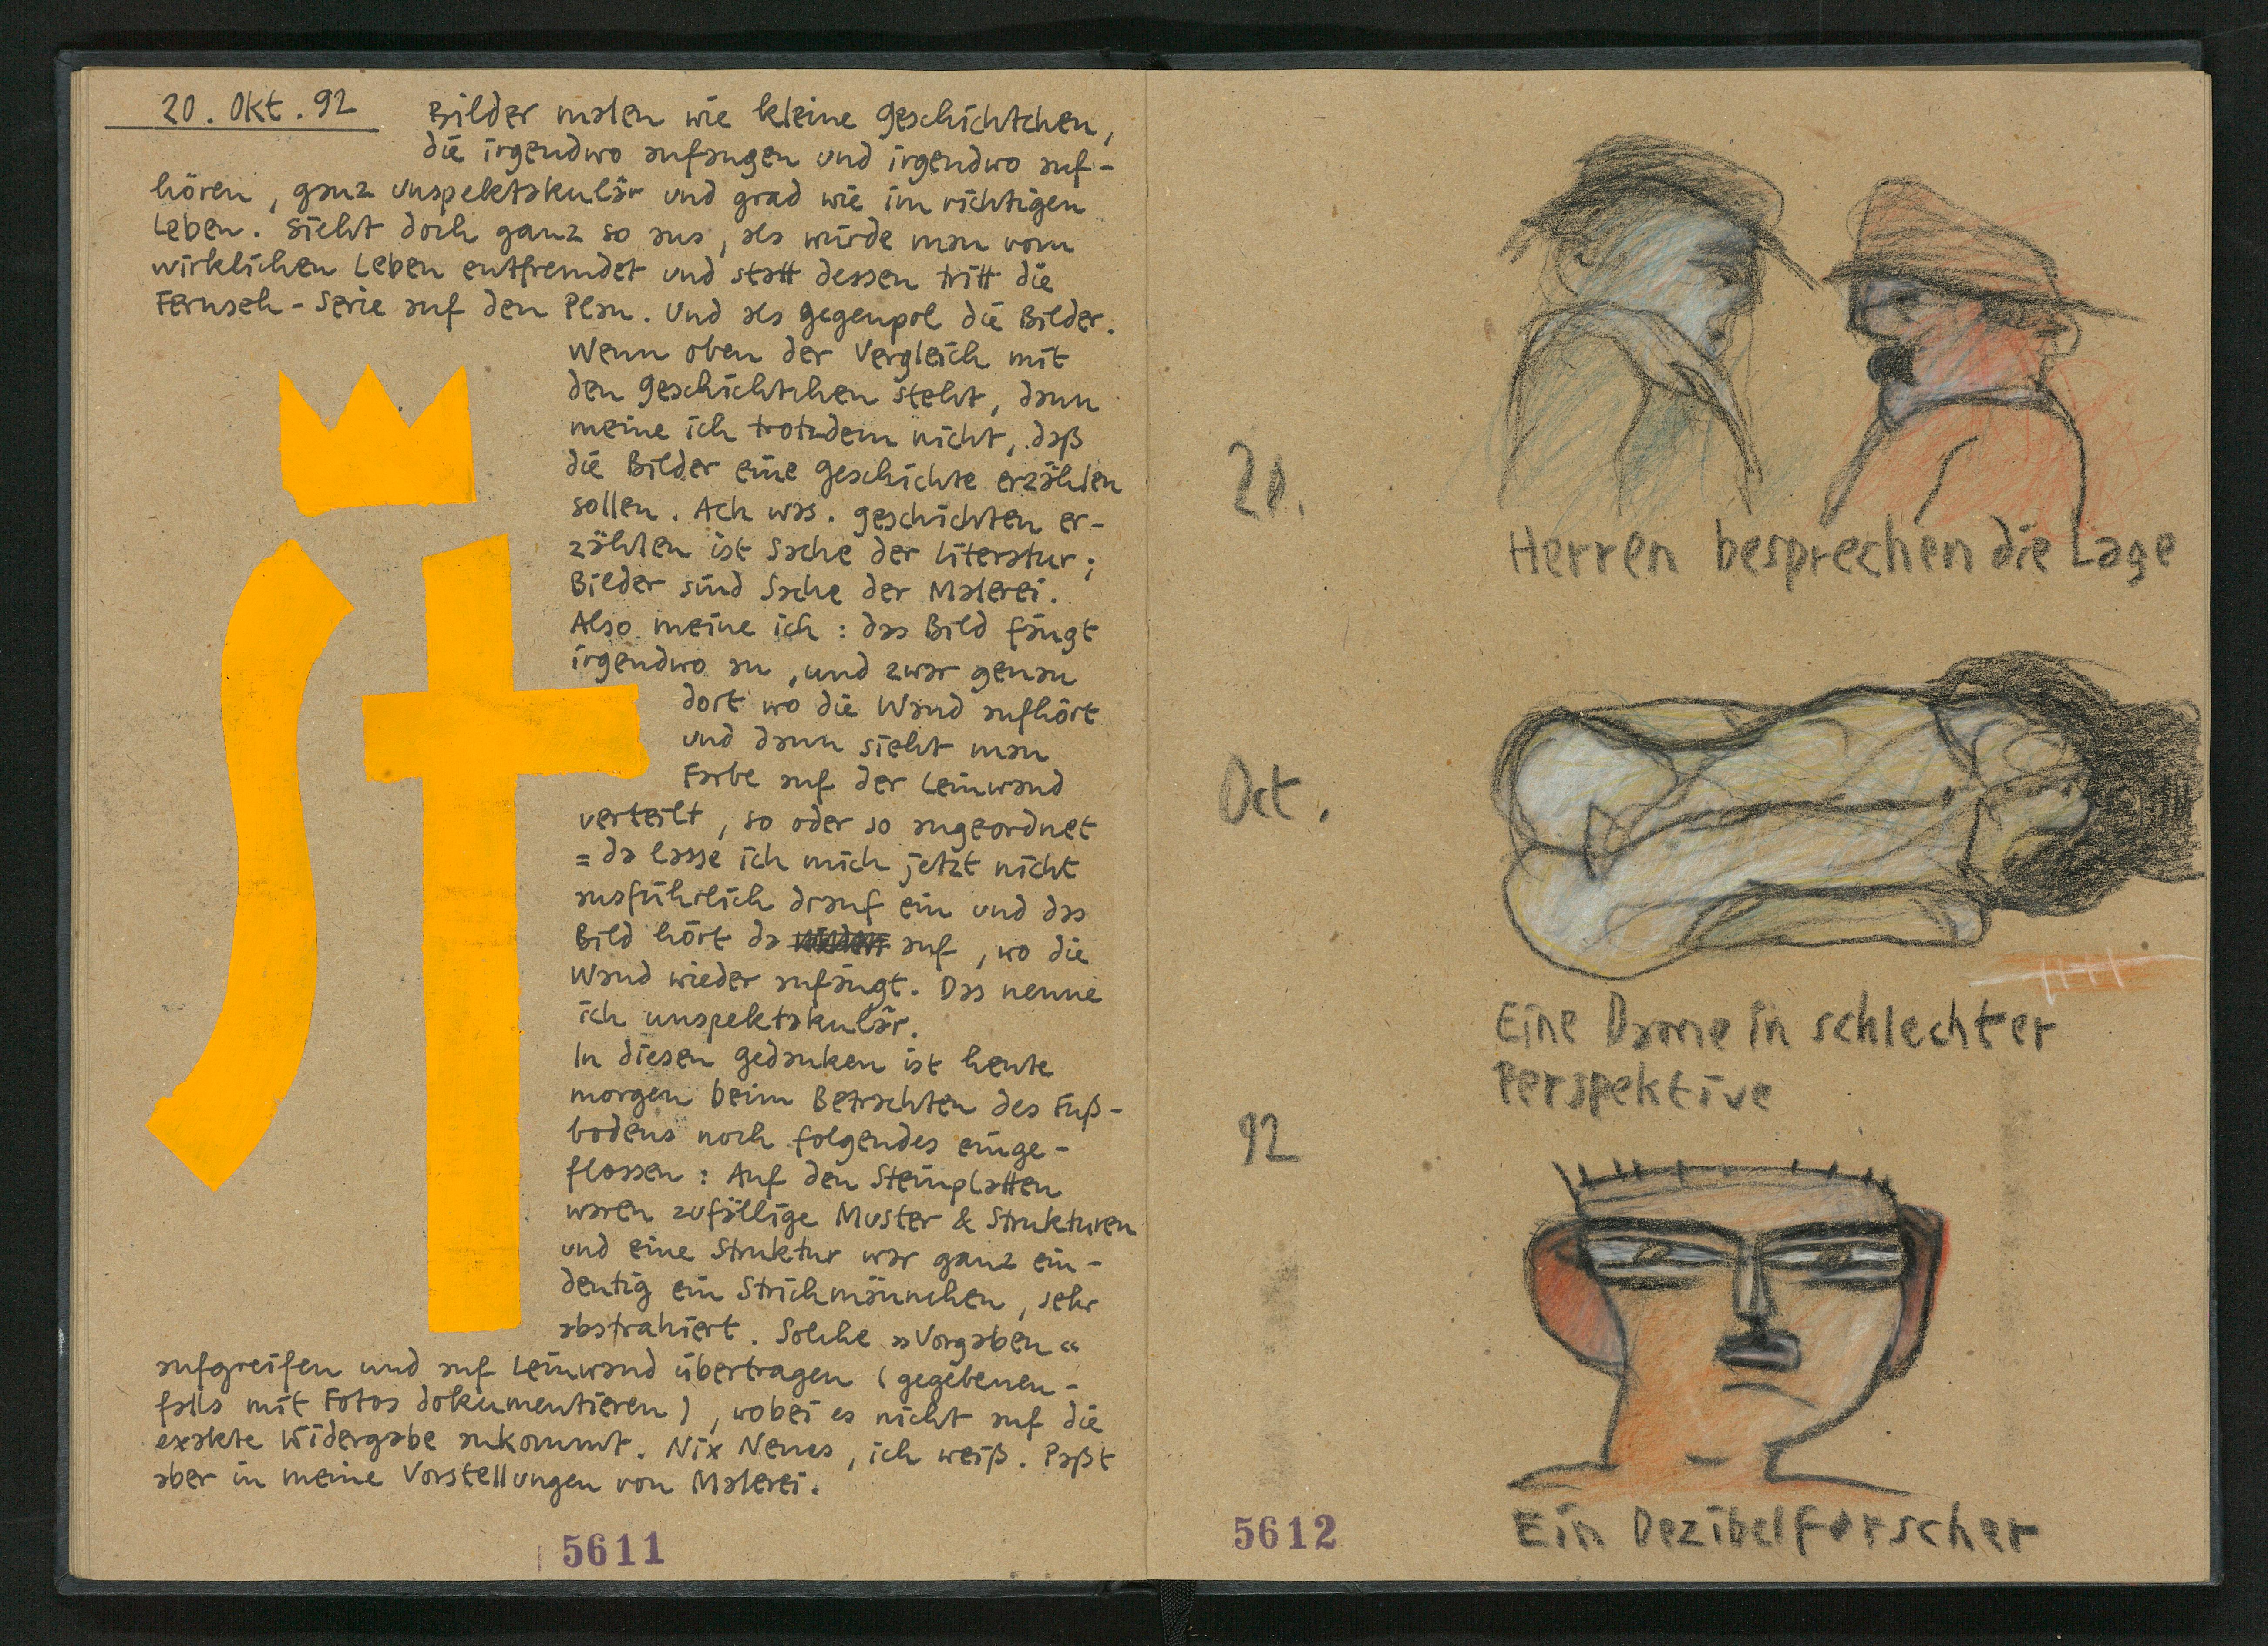 20. Okt. 92
Bilder malen wie kleine Geschichtchen,
die irgendwo anfangen und irgendwo auf-
hören, ganz unspektakulär und grad wie im richtigen
Leben. Sieht doch ganz so aus, als würde man vom
wirklichen Leben entfremdet und statt dessen tritt die
Fernseh-Serie auf den Plan. Und als Gegenpol die Bilder.
Wenn oben der Vergleich mit
den Geschichtchen steht, dann
meine ich trotzdem nicht, daß
die Bilder eine Geschichte erzählen
sollen. Ach was. Geschichten er-
zählen ist Sache der Literatur;
Bilder sind Sache der Malerei.
Also meine ich: das Bild fängt
irgendwo an, und zwar genau
dort wo die Wand aufhört
und dann sieht man
Farbe auf der Leinwand
verteilt, so oder so angeordnet
= da lasse ich mich jetzt nicht
ausführlich drauf ein und das
Bild hört da auf, wo die
Wand wieder anfängt. Das nenne
ich unspektakulär.
In diesen Gedanken ist heute
morgen beim Betrachten des Fuß-
bodens noch folgendes einge-
flossen: Auf den Steinplatten
waren zufällige Muster & Strukturen
und eine Struktur war ganz ein-
deutig ein Strichmännchen, sehr
abstrahiert. Solche »Vorgaben«
aufgreifen und auf Leinwand übertragen (gegebenen-
falls mit Fotos dokumentieren), wobei es nicht auf die
exakte Widergabe ankommt. Nix Neues, ich weiß. Paßt
aber in meine Vorstellungen von Malerei.
5611
20.
Oct.
92
Herren besprechen die Lage
Eine Dame in schlechter
Perspektive
Ein Dezibelforscher
5612